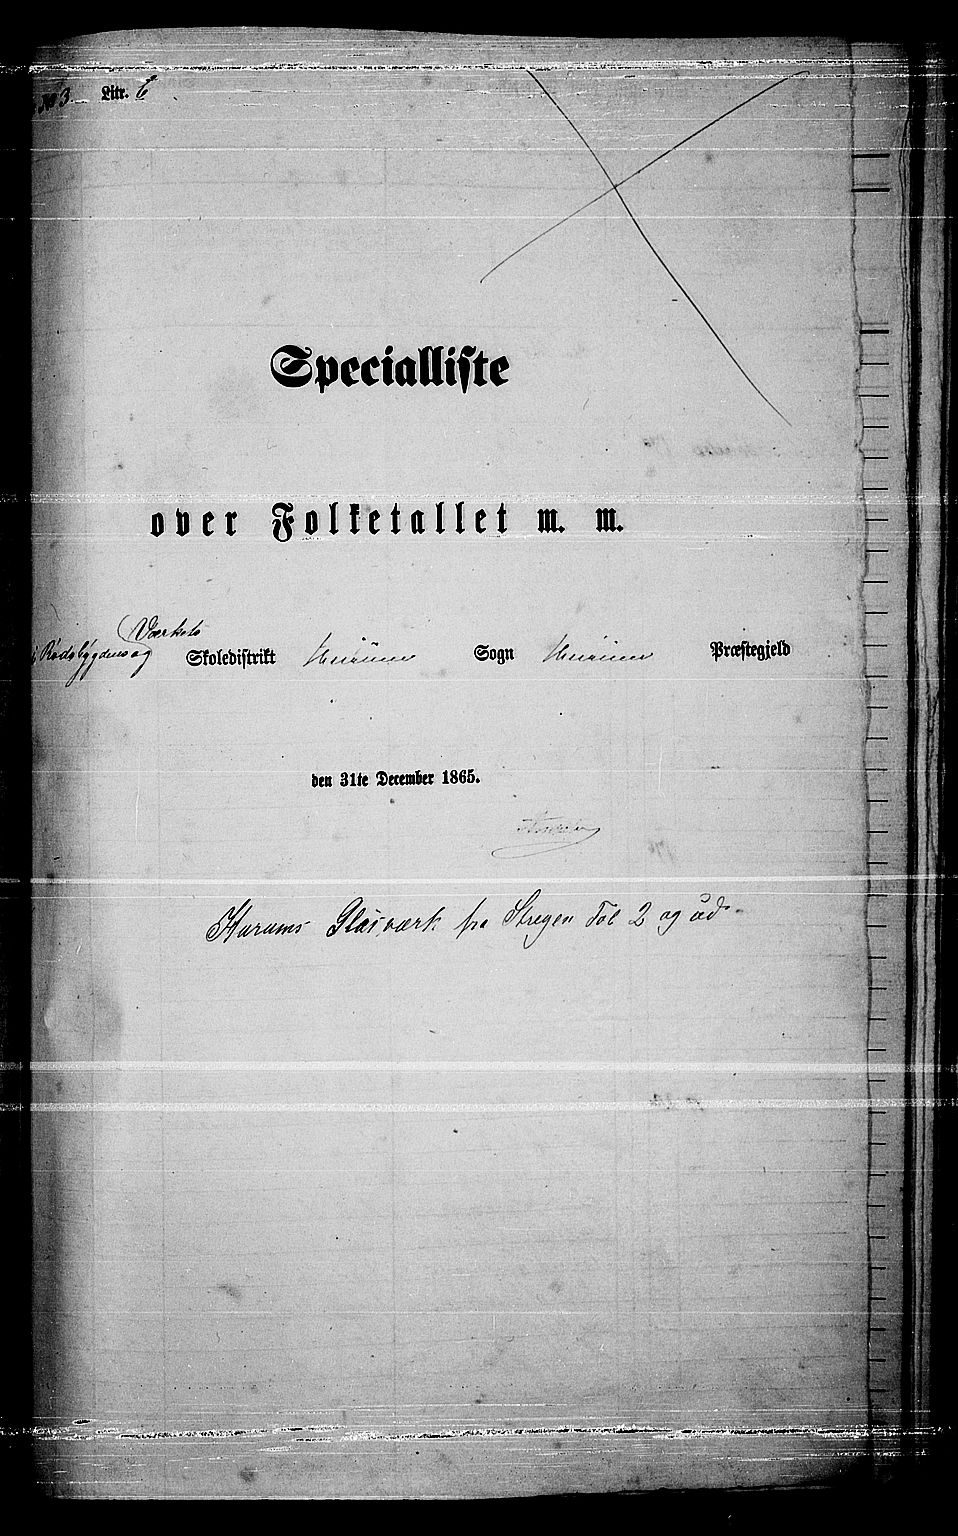 № 3 Litr. C
Specialliste
over Folketallet m. m.
Værkets
i Rødsbygdens og Skoledistrikt Hurum Sogn Hurum Præstegjeld
den 31te December 1865.
Hurums Glasværk fra Stregen Fol 2 og ud